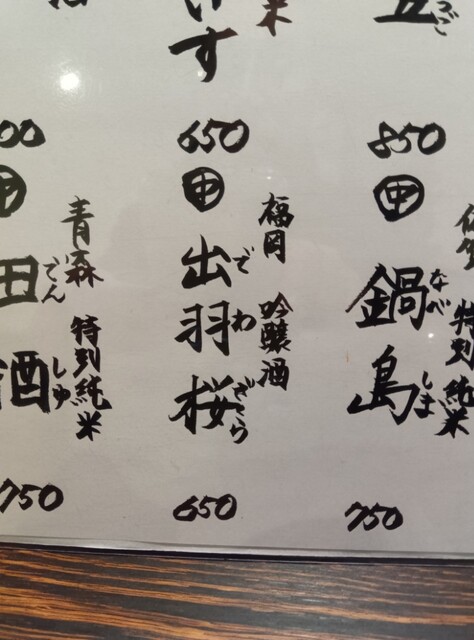 850
㊥
佐賀 特別純米
鍋島
なべ しま
750
米
す
650
㊥
福岡 吟醸酒
出羽桜
で わ ざくら
650
00
㊥
青森 特別純米
田酒
でん しゅ
750